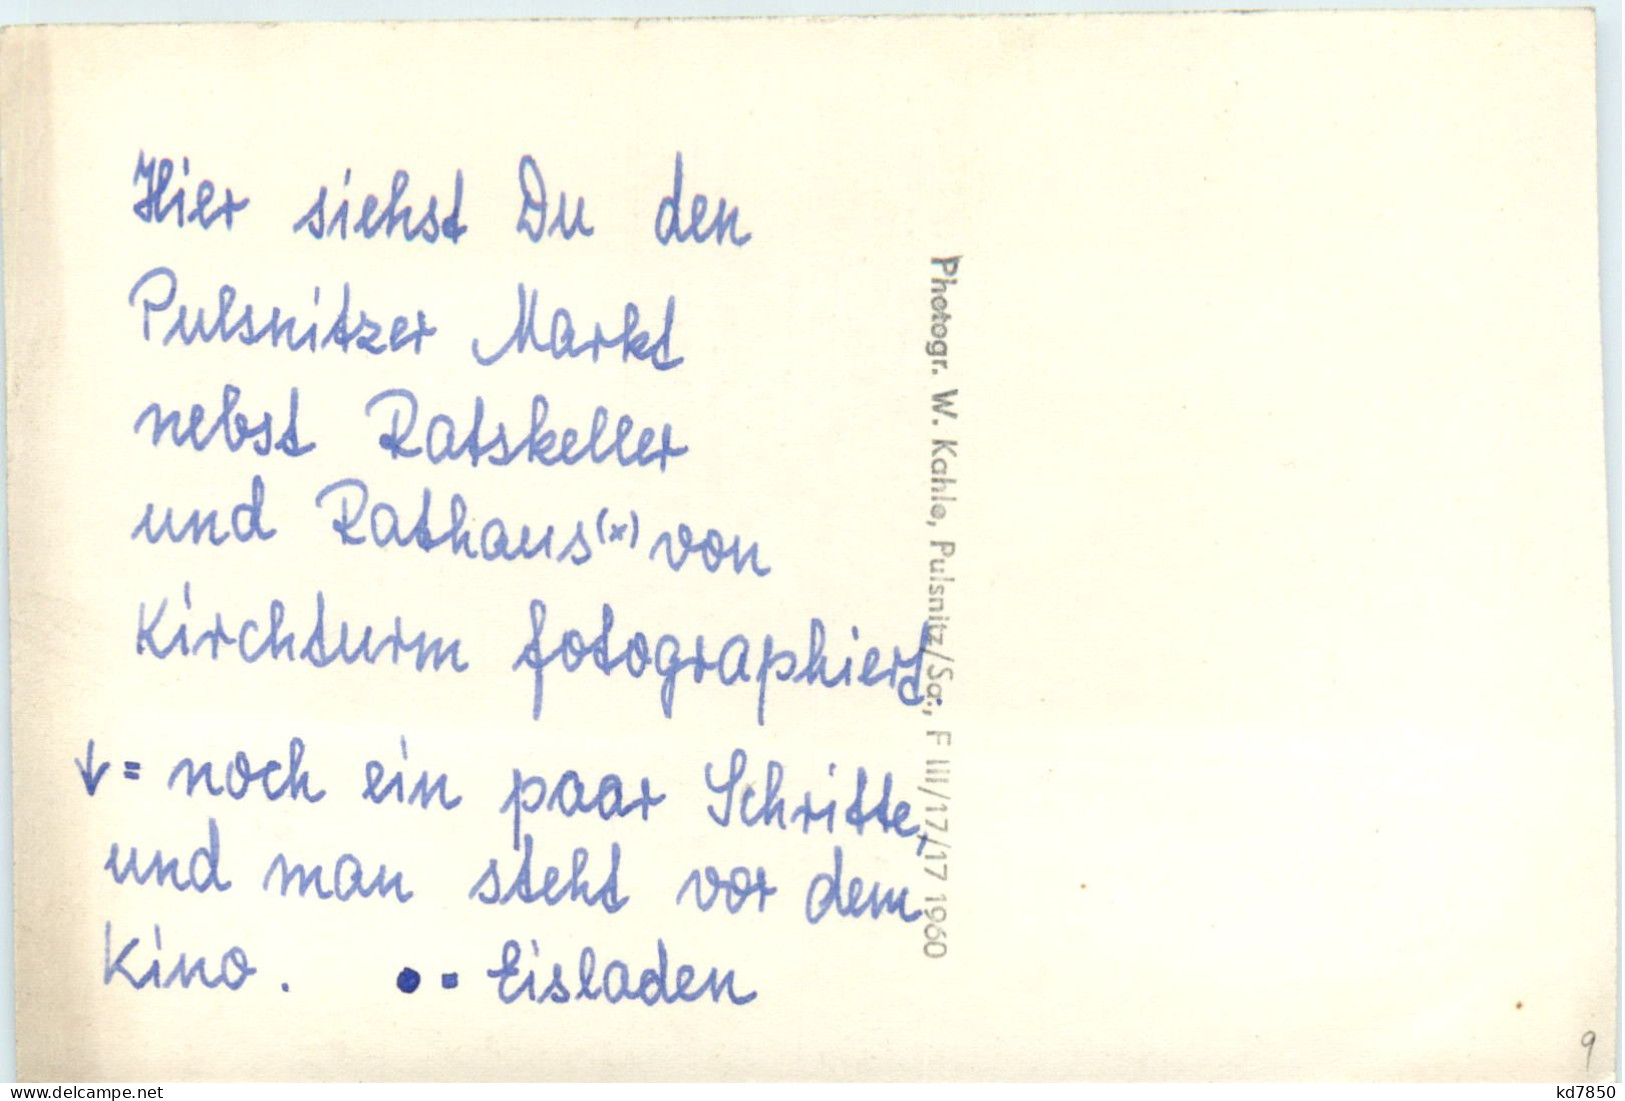 Hier siehst Du den
Pulsnitzer Markt
nebst Ratskeller
und Rathaus (x) von
Kirchturm fotographiert.
↓ = noch ein paar Schritte,
und man steht vor dem
Kino. • = Eisladen
Photogr. W. Kahle, Pulsnitz/Sa., F III/17/17 1960
9
delcampe.net
kd7850